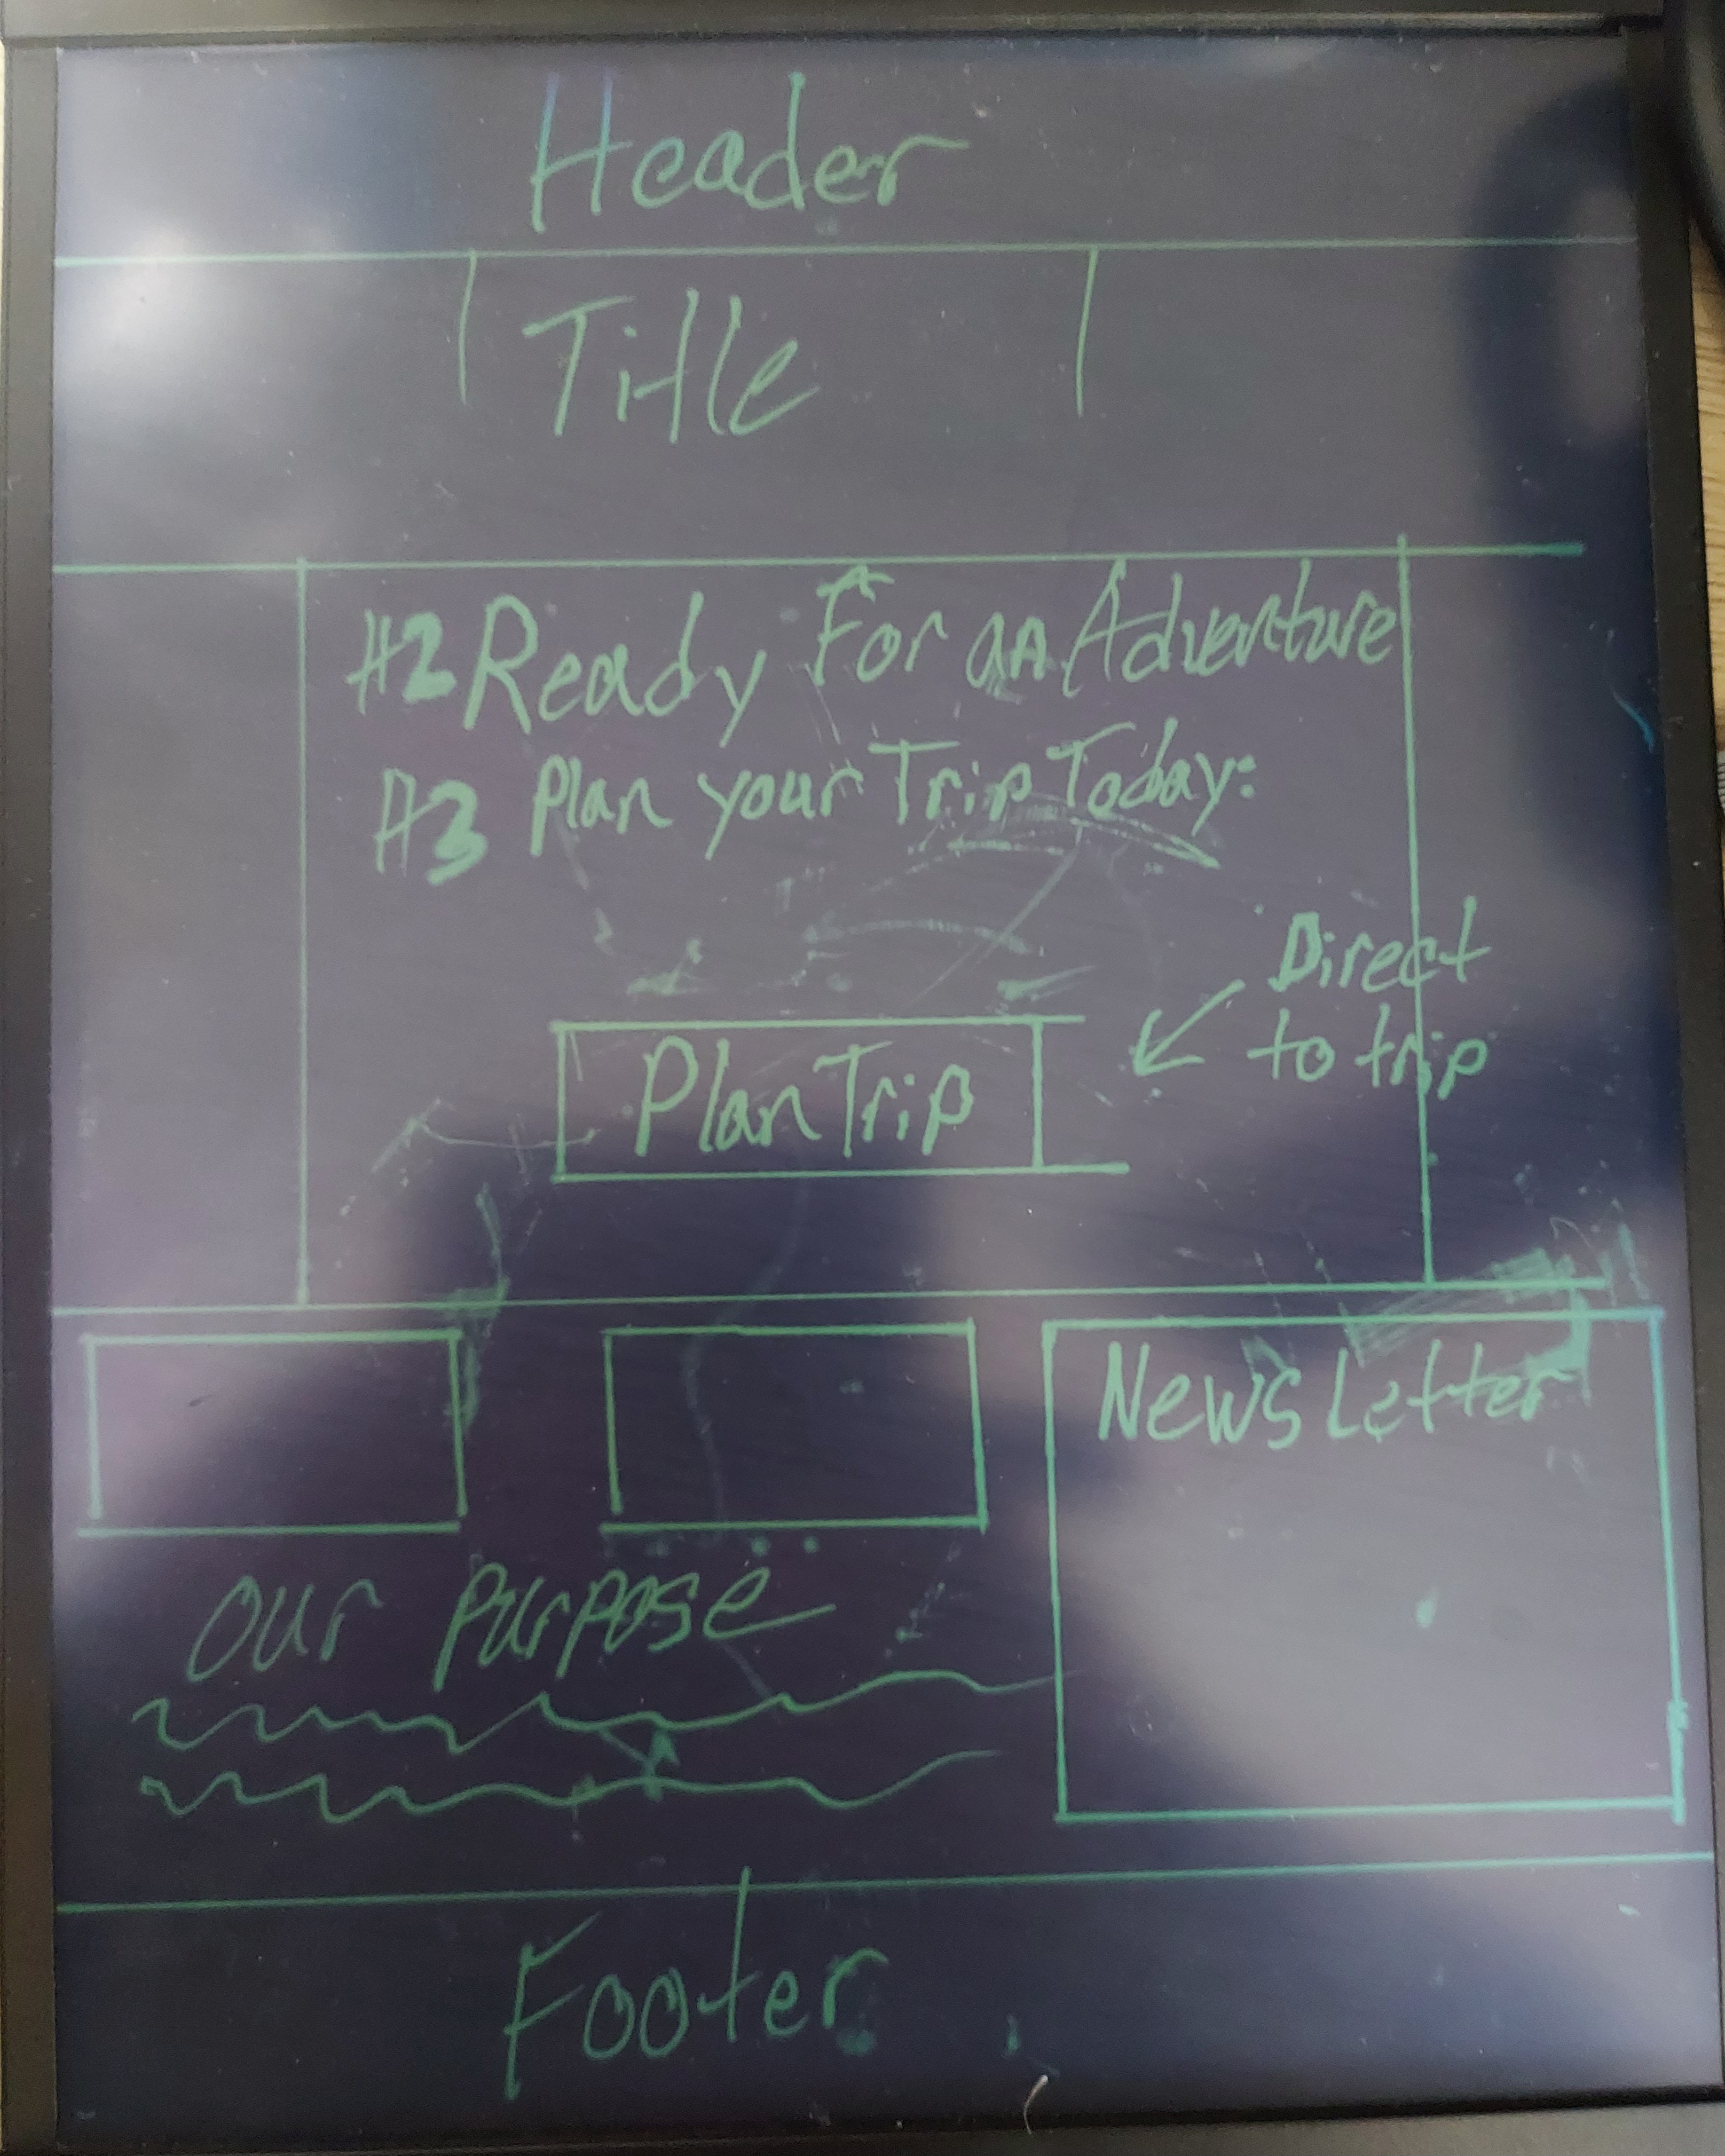 Header
Title
H2 Ready For an Adventure
H3 Plan your Trip Today:
Direct
to trip
Plan Trip
News Letter
Our Purpose
Footer